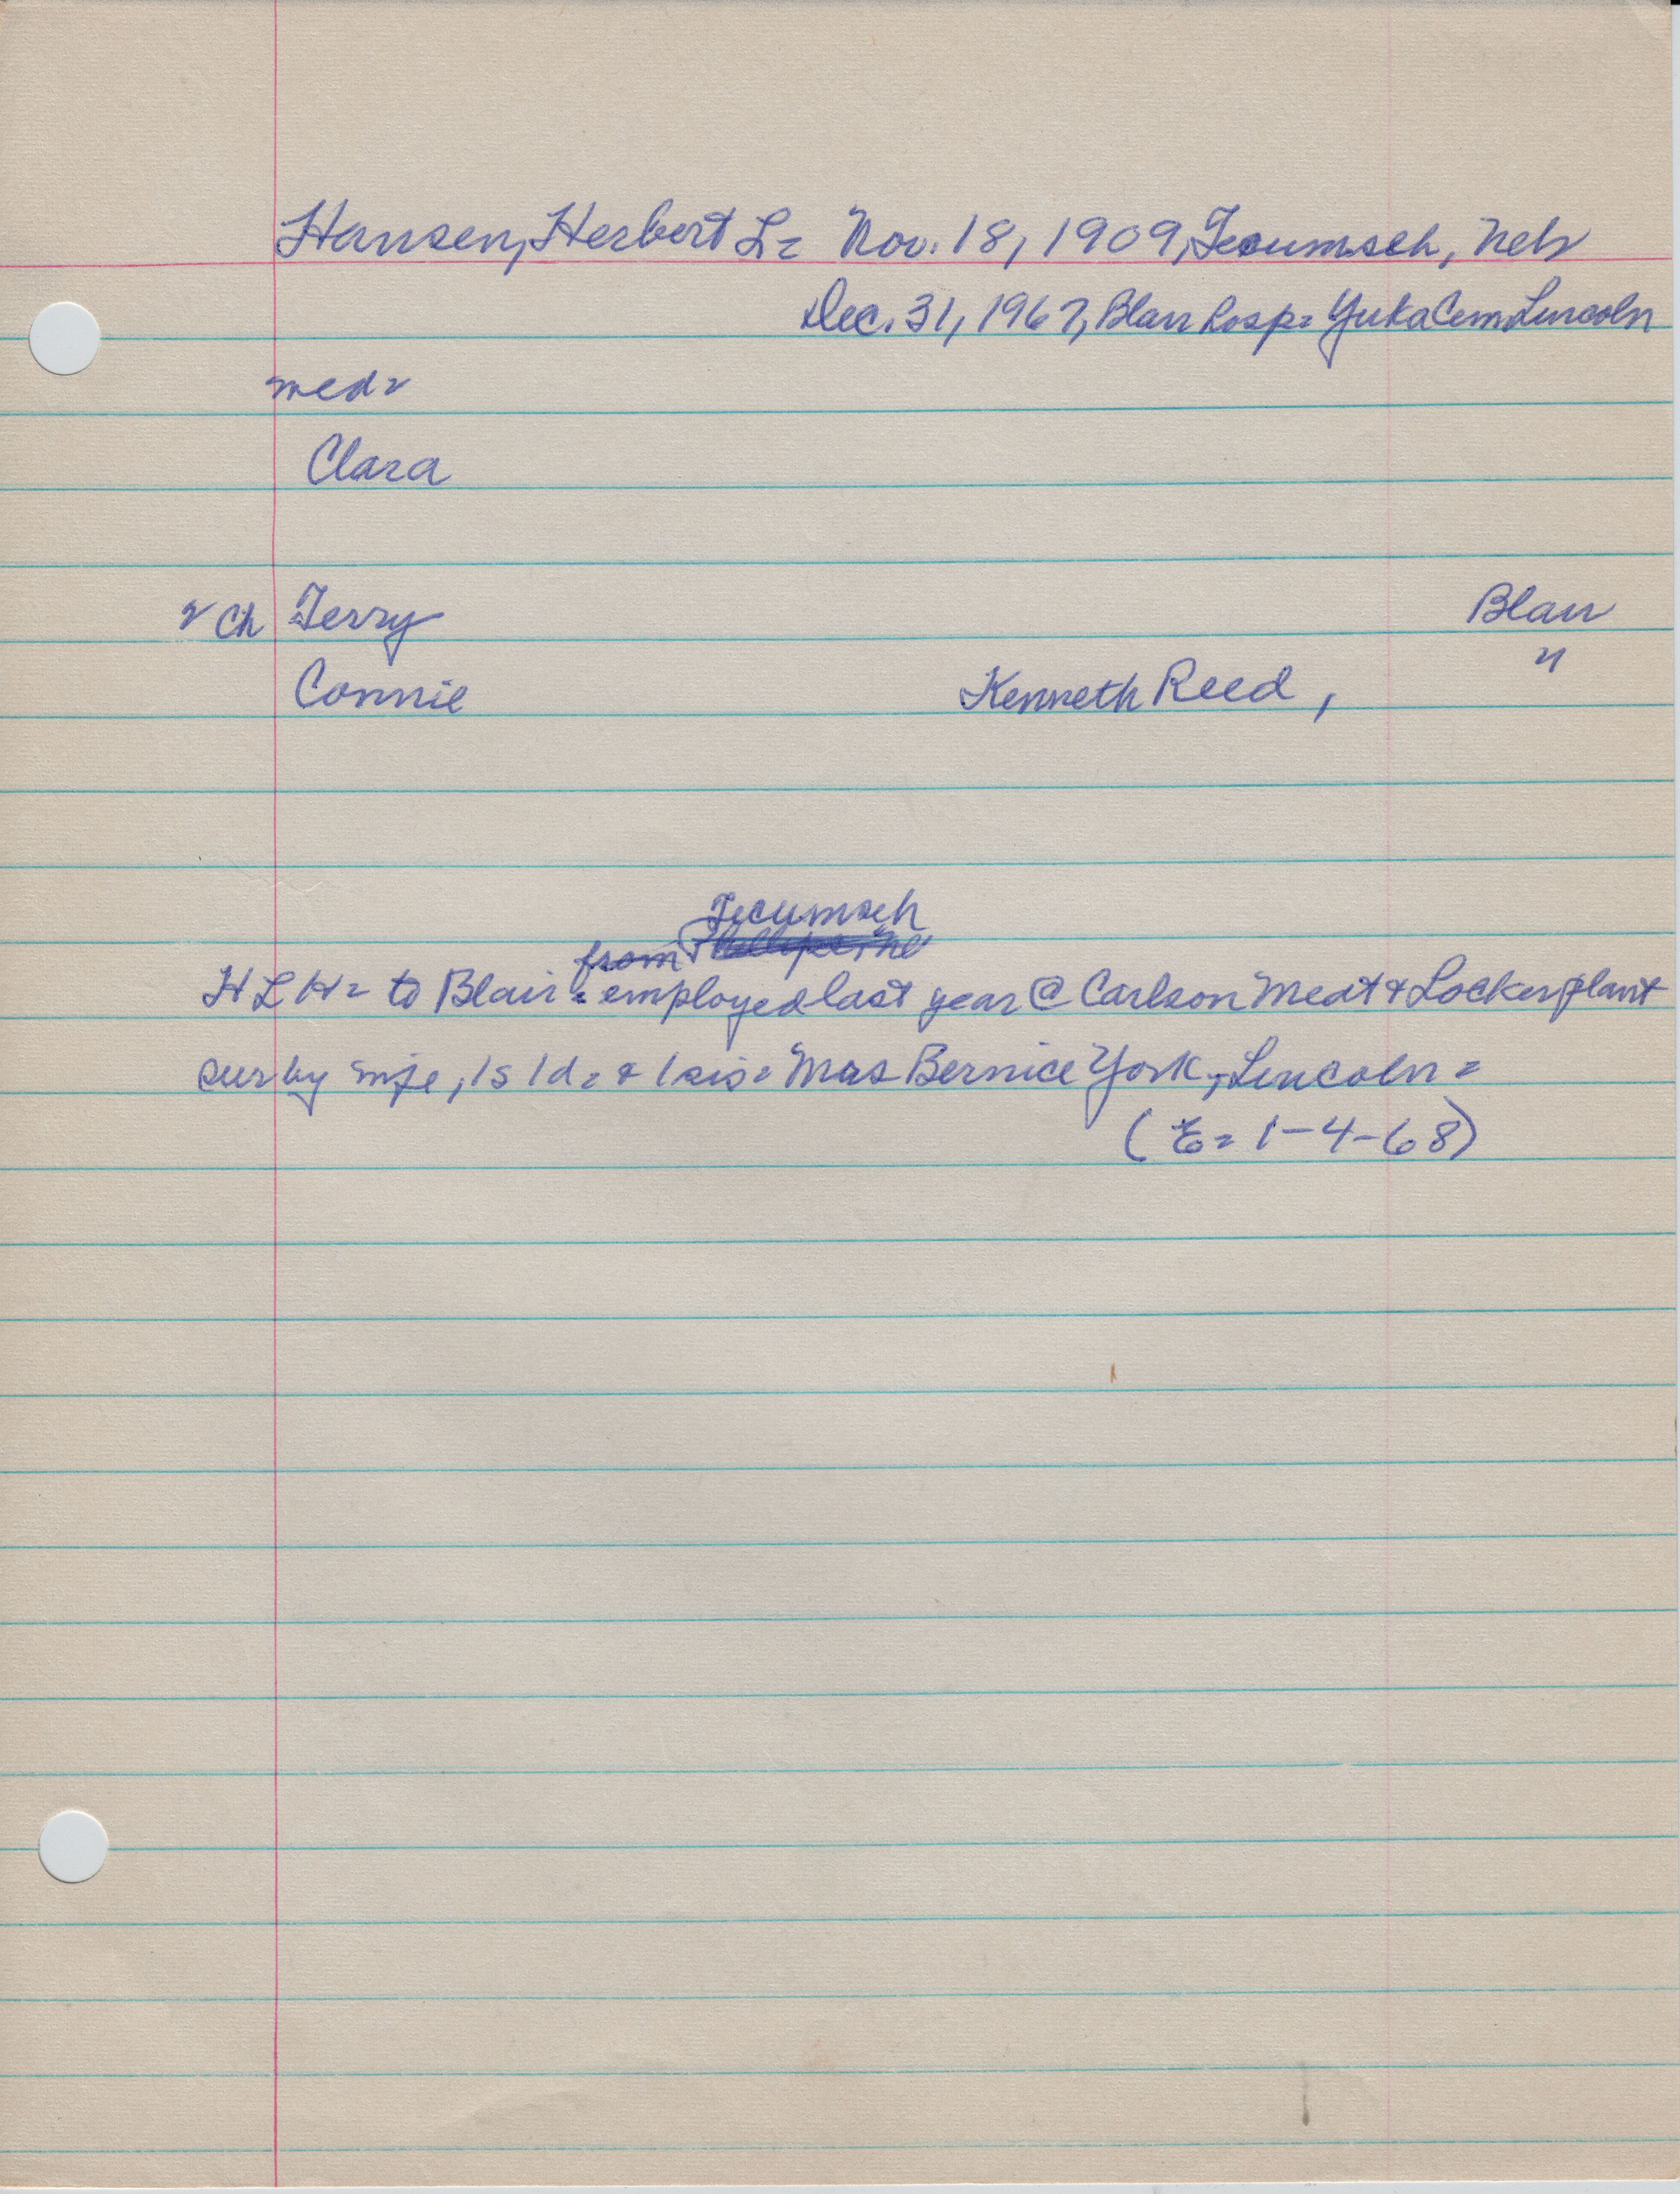 Hansen, Herbert L= Nov. 18, 1909, Tecumseh, Neb
Dec. 31, 1967, Blair hosp= Yuka Cem Lincoln
med=
Clara
2 Ch Terry Blair
Connie Kenneth Reed, "
Tecumseh
from
H L H= to Blair= employed last year @ Carlson Meat & Locker plant
sur by wife, 1s 1d= & 1 sis= Mrs Bernice York, Lincoln=
(E= 1-4-68)